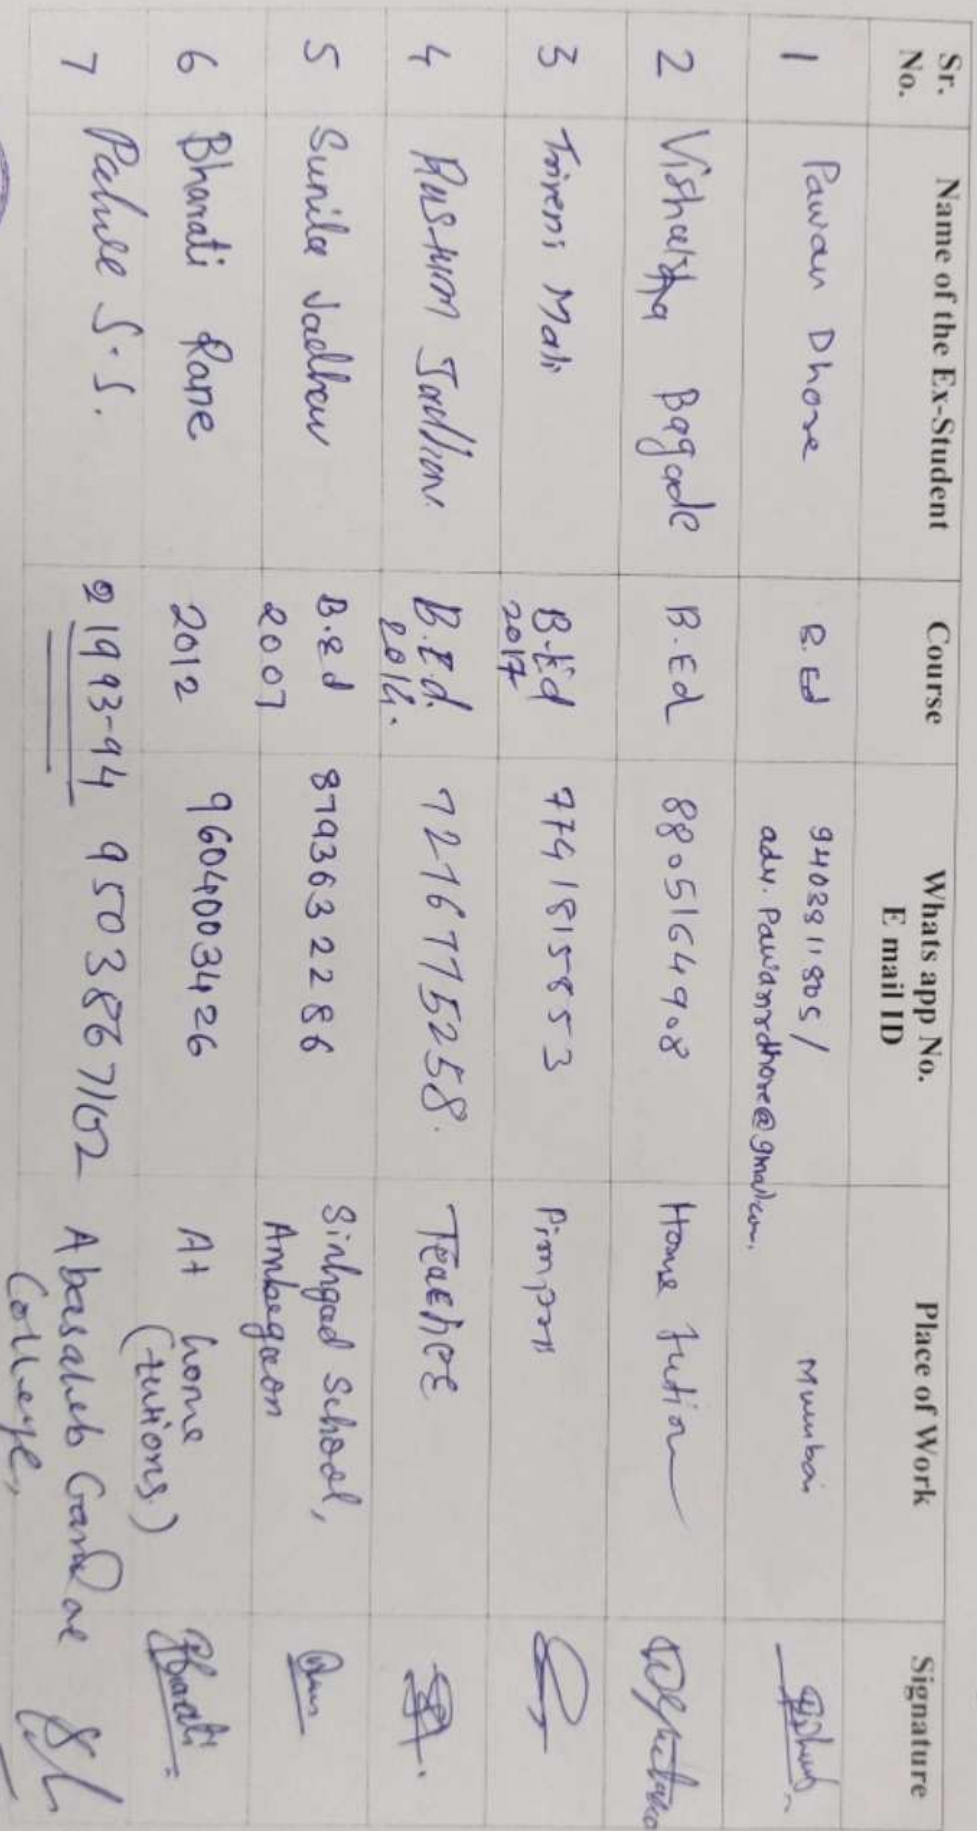 Sr. No. Name of the Ex-Student Course Whats app No. E mail ID Place of Work Signature
1 Pawan Dhore B.Ed 9403811805 / adv.Pawanrdhore@gmail.com, Mumbai
2 Vishalsha Bagade B.Ed 8805164908 Home tution
3 Triveni Mali B.Ed 2017 7741815853 Pimpri
4 Rustum Jadhav. B.Ed. 2014. 7216775258. Teacher
5 Sunila Jadhav B.Ed 2007 8793632286 Sinhgad School, Ambegaon
6 Bharati Rane 2012 9604003426 At home (tutions) Bharati
7 S.S. 1993-94 9503867102 Abasaheb Garware College,